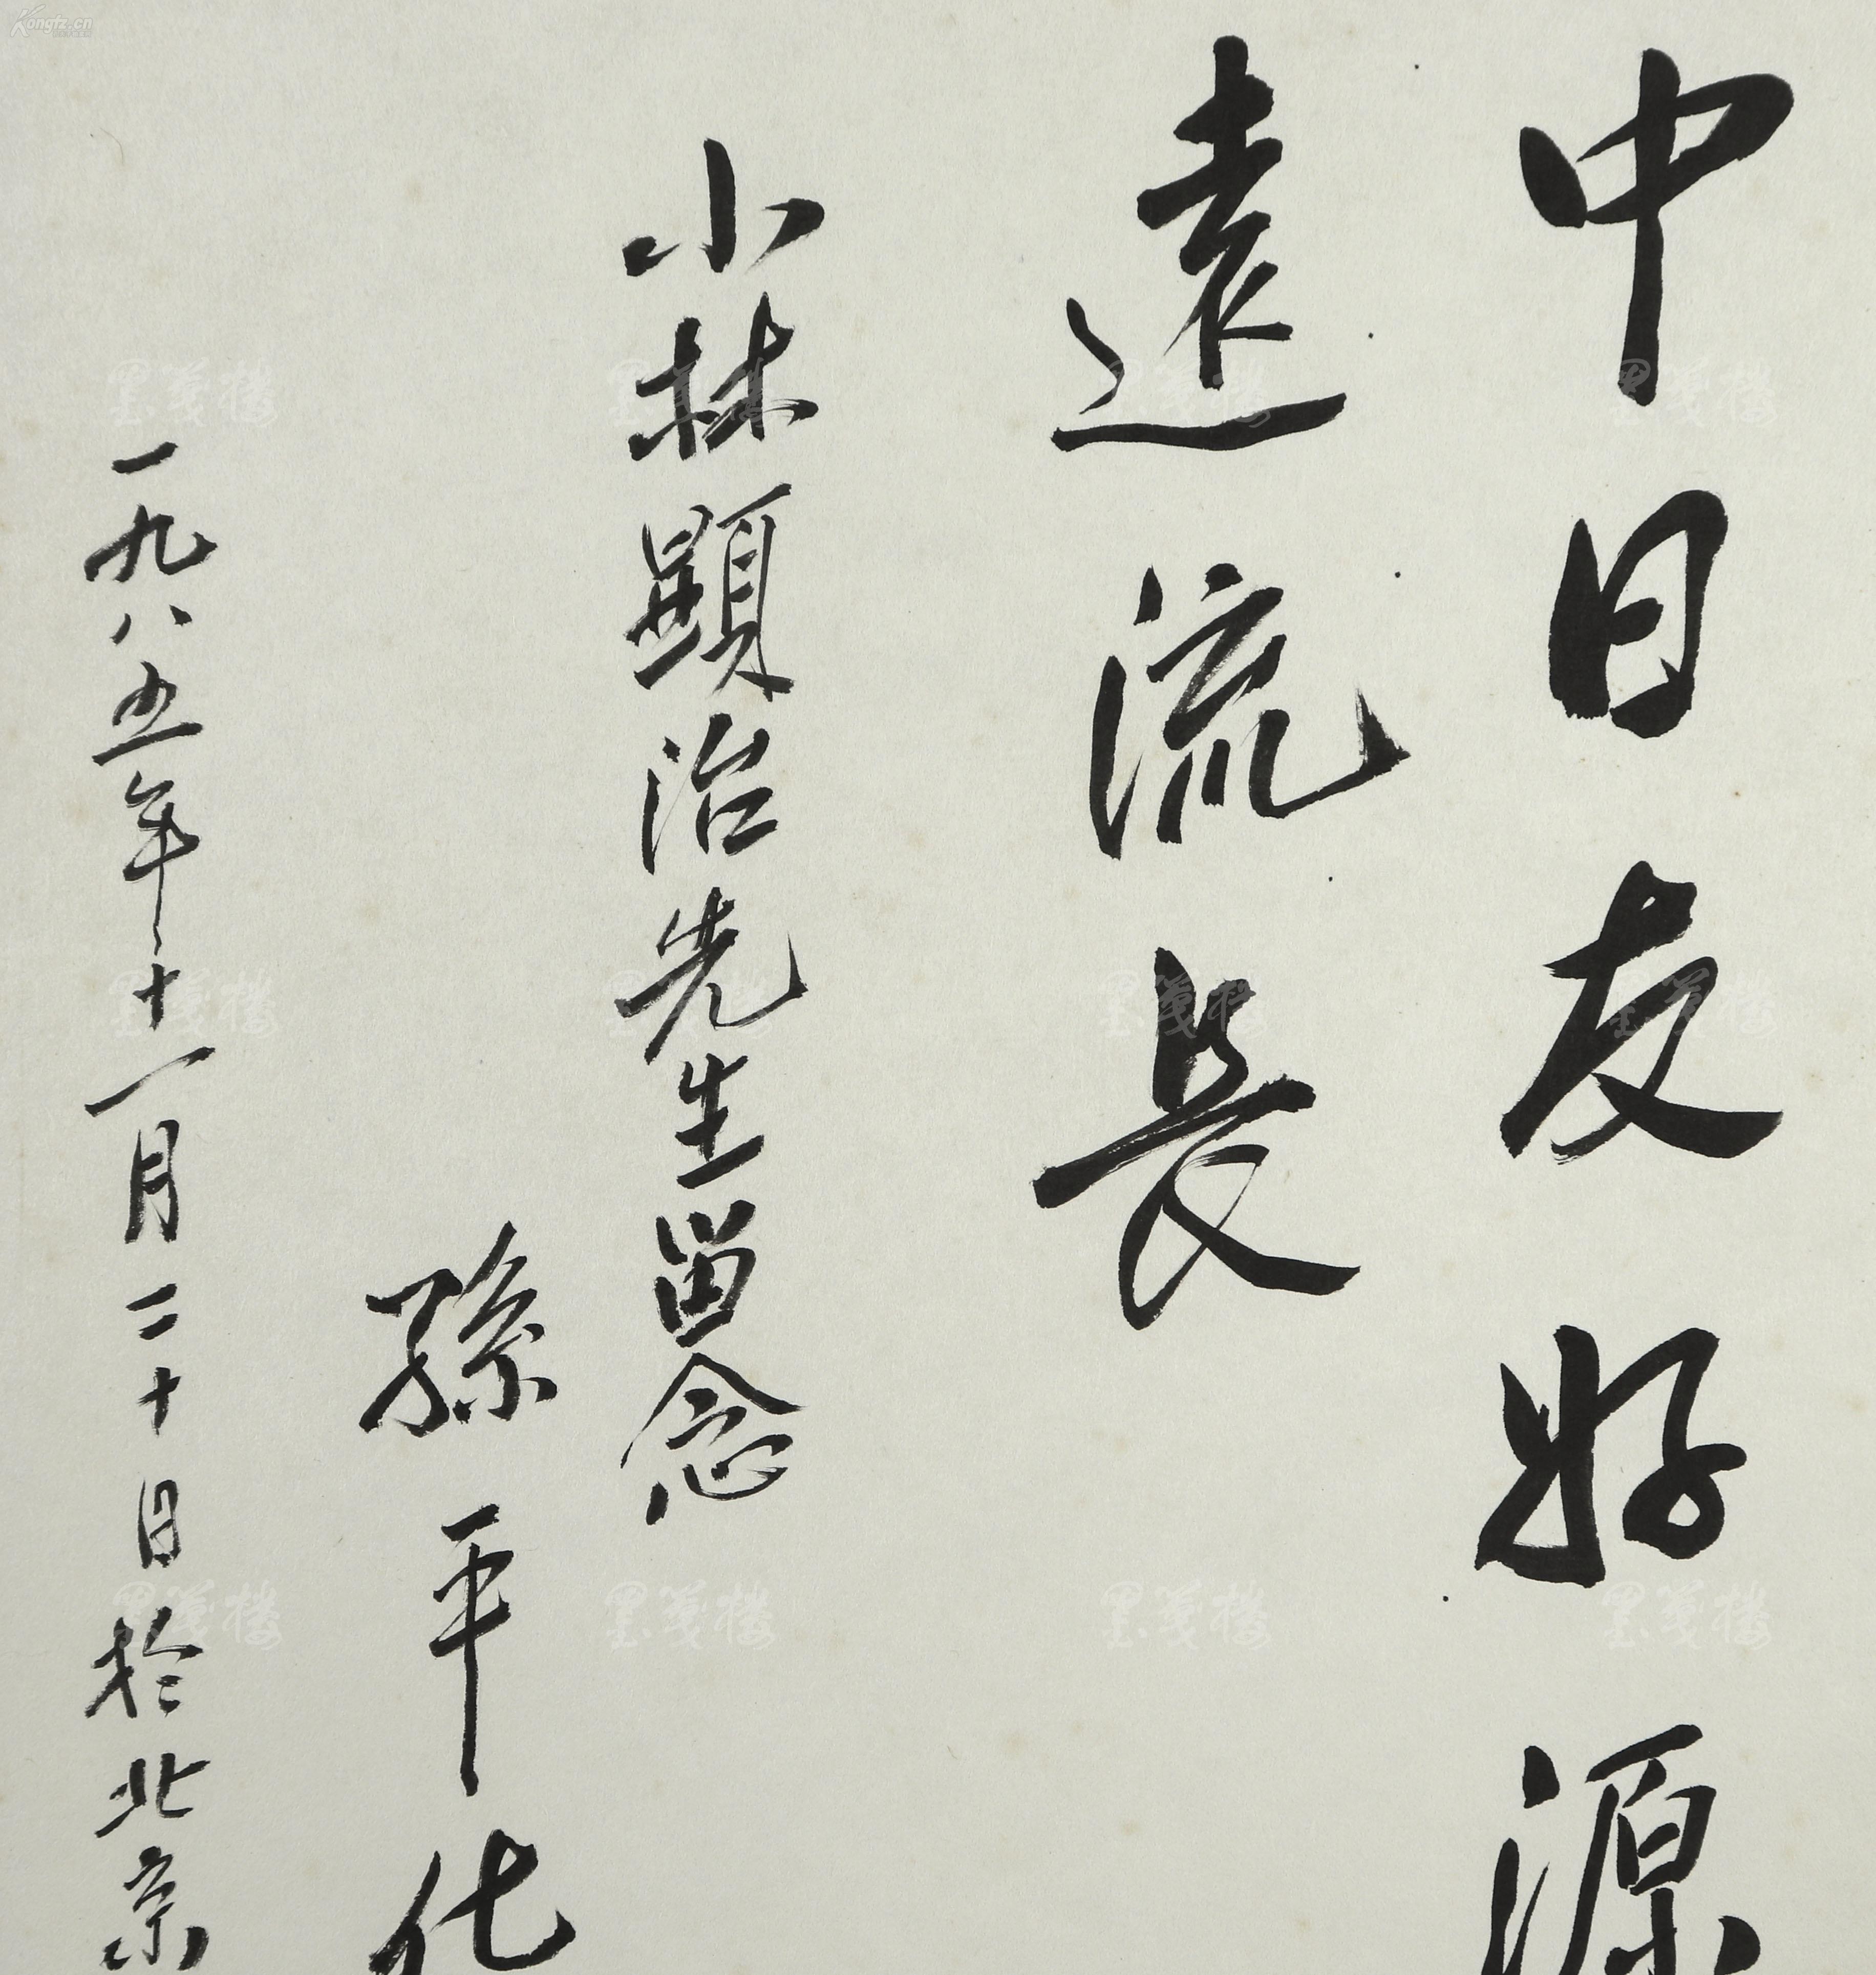 中日友好源
遠流長
小林顕治先生留念
孫平化
一九八五年十一月二十日於北京
Kongfz.cn
墨笺楼